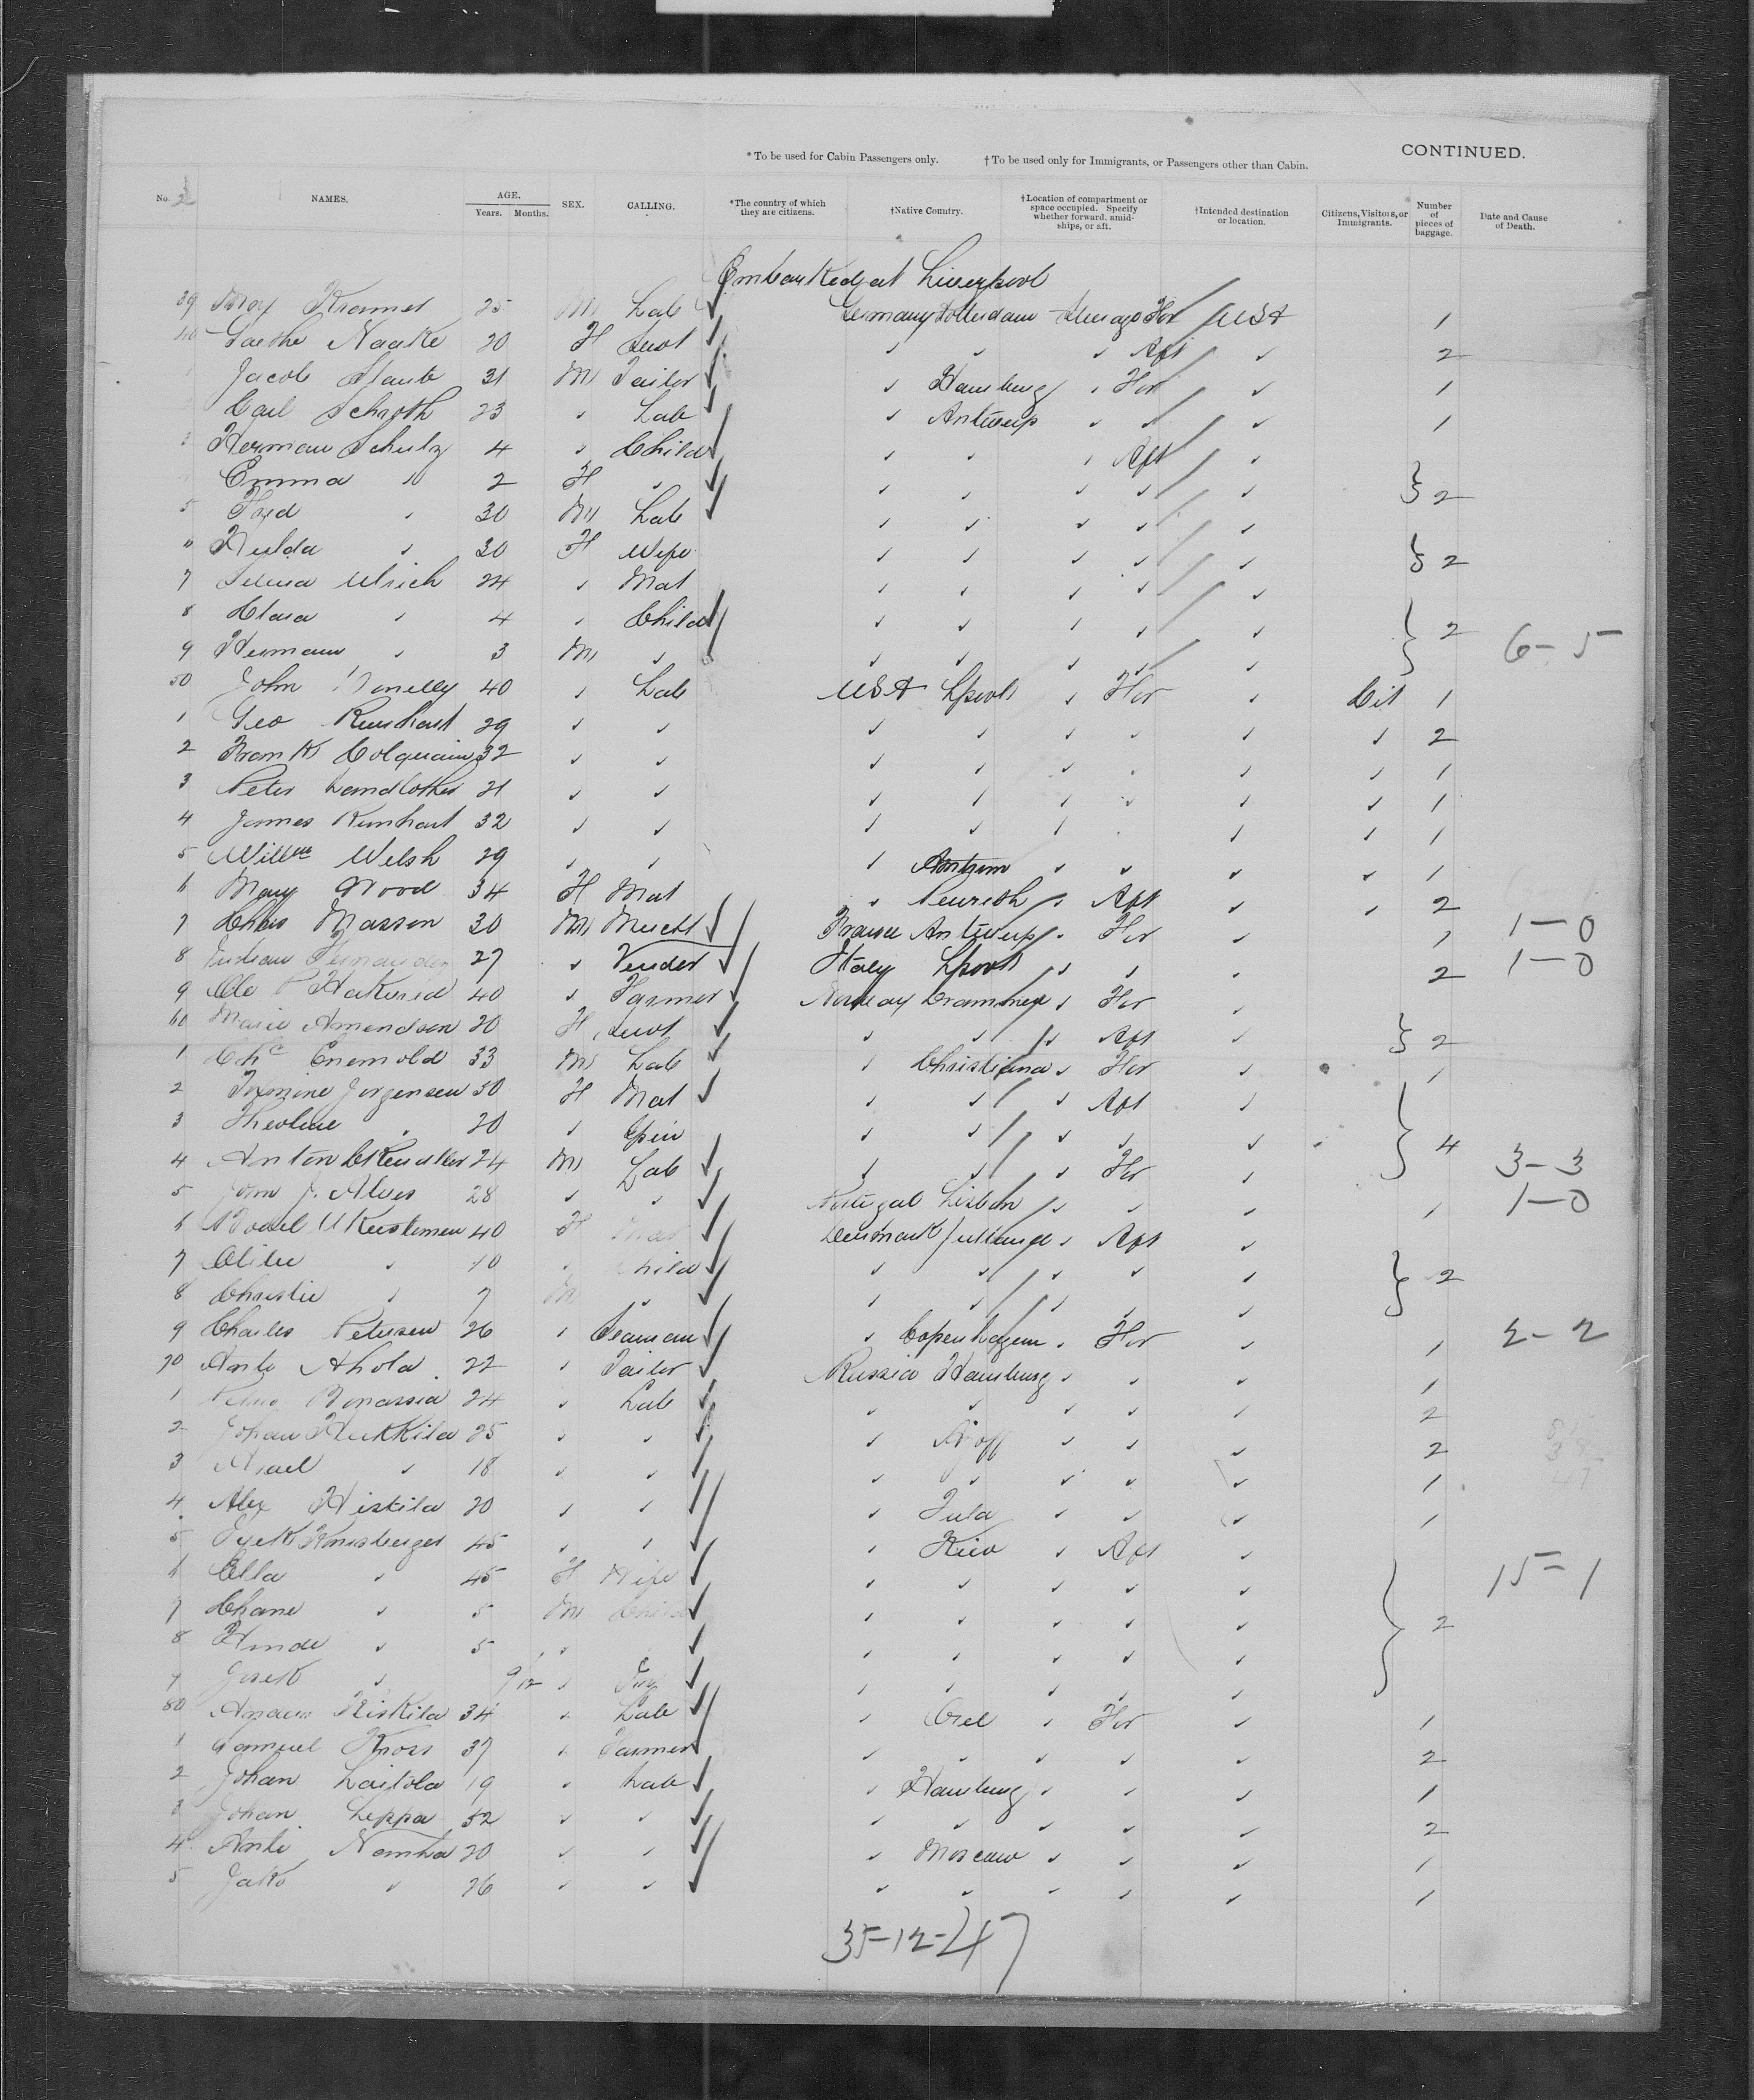 CONTINUED.
*To be used for Cabin Passengers only. †To be used only for Immigrants, or Passengers other than Cabin.
No. NAMES. AGE. Years. Months. SEX. CALLING. *The country of which they are citizens. †Native Country. †Location of compartment or space occupied. Specify whether forward, amidships, or aft. †Intended destination or location. Citizens, Visitors, or Immigrants. Number of pieces of baggage. Date and Cause of Death.
Embarked at Liverpool
39 Kramer 25 M Lab Germany Rotterdam For USA 1
40 Naake 20 F Servt ✓ ✓ ✓ Aft ✓ 2
Jacob Staub 31 M Tailor ✓ Hamburg ✓ For ✓ 1
Carl Schroth 23 ✓ Lab ✓ Antwerp ✓ ✓ ✓ 1
Herman Schulz 4 ✓ Child ✓ ✓ ✓ Aft ✓
Emma ✓ 2 F ✓ ✓ ✓ ✓ ✓ ✓ } 2
5 Fred ✓ 30 M Lab ✓ ✓ ✓ ✓ ✓
Hulda ✓ 30 F Wife ✓ ✓ ✓ ✓ ✓ } 2
7 Ulrich 24 ✓ Mat ✓ ✓ ✓ ✓ ✓
8 Clara ✓ 4 ✓ Child ✓ ✓ ✓ ✓ ✓ } 2
9 Hermann ✓ 3 M ✓ ✓ ✓ ✓ ✓ ✓ 6-5
50 John Donelly 40 ✓ Lab USA Lpool ✓ For ✓ Cit 1
1 Geo 29 ✓ ✓ ✓ ✓ ✓ ✓ ✓ ✓ 2
2 Frank Colquain 32 ✓ ✓ ✓ ✓ ✓ ✓ ✓ ✓ 1
3 Peter 21 ✓ ✓ ✓ ✓ ✓ ✓ ✓ ✓ 1
4 James 32 ✓ ✓ ✓ ✓ ✓ ✓ ✓ ✓ 1
5 Willm Welsh 29 ✓ ✓ ✓ Antrim ✓ ✓ ✓ ✓ 1
6 Mary Wood 34 F Mat ✓ Penrith ✓ Aft ✓ ✓ 2
7 Chas Masson 30 M Mercht France Antwerp ✓ For ✓ 1 1-0
8 27 ✓ Vender Italy Lpool ✓ ✓ ✓ 2 1-0
9 Ole 40 ✓ Farmer Norway Drammen ✓ For ✓
60 Marie Amendsen 20 F Servt ✓ ✓ ✓ Aft ✓ } 2
1 Enemold 33 M Lab ✓ Christiana ✓ For ✓ 1
2 Jorgensen 50 F Mat ✓ ✓ ✓ Aft ✓
3 ✓ 20 ✓ Spin ✓ ✓ ✓ ✓ ✓ } 4
4 Anton 24 M Lab ✓ ✓ ✓ For ✓ 3-3
5 John J. Alves 28 ✓ ✓ Portugal Lisbon ✓ ✓ ✓ 1 1-0
6 40 F Mat Denmark Aft ✓
7 ✓ 10 ✓ Child ✓ ✓ ✓ ✓ ✓ } 2
8 Christie ✓ 7 M ✓ ✓ ✓ ✓ ✓ ✓
9 Charles Petersen 26 ✓ Seaman ✓ Copenhagen ✓ For ✓ 1 2-2
70 Ahola 22 ✓ Tailor Russia Hamburg ✓ ✓ ✓ 1
1 24 ✓ Lab ✓ ✓ ✓ ✓ ✓ 2
2 Johan Heikkila 25 ✓ ✓ ✓ ✓ ✓ ✓ 2
3 ✓ 18 ✓ ✓ ✓ ✓ ✓ ✓ ✓ 1
4 Alex Hiskila 20 ✓ ✓ ✓ Tula ✓ ✓ ✓ 1
5 45 ✓ ✓ ✓ Kiev ✓ Aft ✓
6 Ella ✓ 45 F Wife ✓ ✓ ✓ ✓ ✓ 15-1
7 Chane ✓ 5 M Child ✓ ✓ ✓ ✓ ✓ } 2
8 Hinde ✓ 5 ✓ ✓ ✓ ✓ ✓ ✓
9 Josek ✓ 9/12 ✓ Inf ✓ ✓ ✓ ✓ ✓
80 34 ✓ Lab ✓ Orel ✓ For ✓ 1
1 Samuel Knoss 37 ✓ Farmer ✓ ✓ ✓ ✓ ✓ 2
2 Johan Laitola 19 ✓ Lab ✓ Hamburg ✓ ✓ ✓ 1
3 Johan Leppa 52 ✓ ✓ ✓ ✓ ✓ ✓ ✓ 2
4 20 ✓ ✓ ✓ Moscow ✓ ✓ ✓ 1
5 Jako ✓ 26 ✓ ✓ ✓ ✓ ✓ ✓ ✓ 1
35-12-47